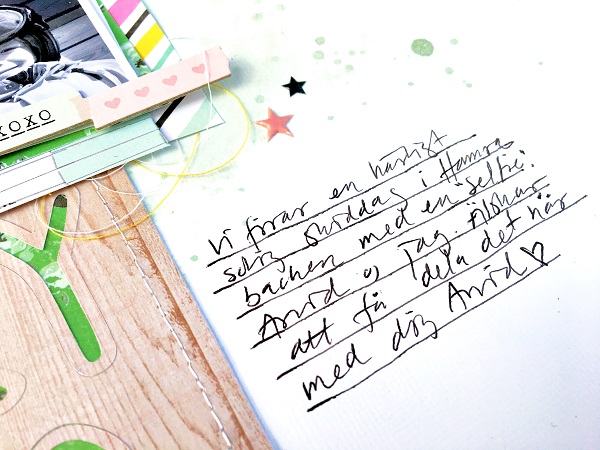 XOXO
Vi firar en härligt
solig skiddag i Hamra
backen med en selfie.
Arvid og jag. Älskar
att få dela det här
med dig Arvid ♡